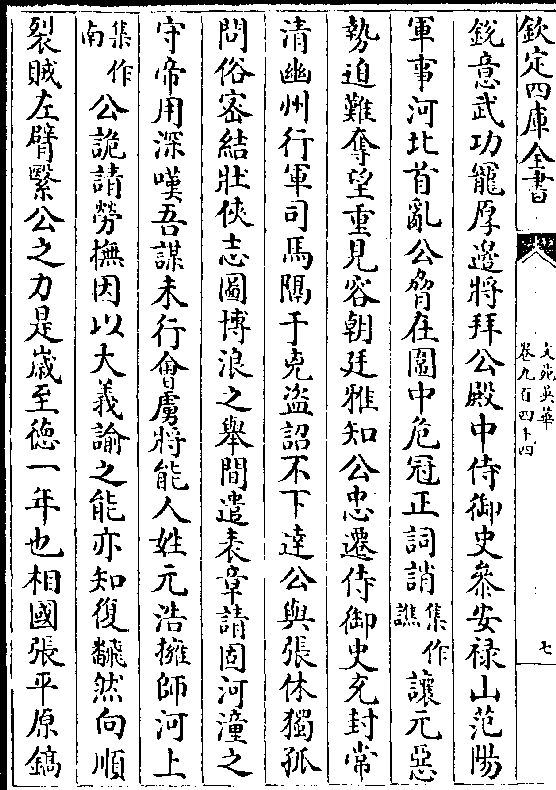 欽定四庫全書
文苑英華
卷九百四十四
七
鋭意武功寵厚邉將拜公殿中侍御史叅安禄山范陽
軍事河北首亂公脅在圍中危冠正詞誚集作譙讓元惡
勢迫難奪望重見容朝廷雅知公忠遷侍御史充封常
清幽州行軍司馬隔于克盗詔不下達公與張休獨孤
問俗宻結壯俠志圖博浪之舉間遣表章請固河潼之
守帝用深嘆吾謀未行㑹虜將能人姓元浩擁師河上
集作南公詭請勞撫因以大義諭之能亦知復飜然向順
裂賊左臂繄公之力是嵗至徳一年也相國張平原鎬